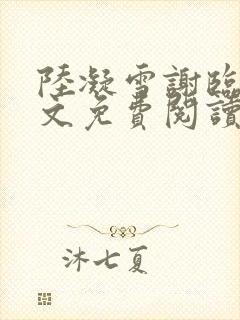 陸凝雪謝臨
文免費閱讀
沐七夏